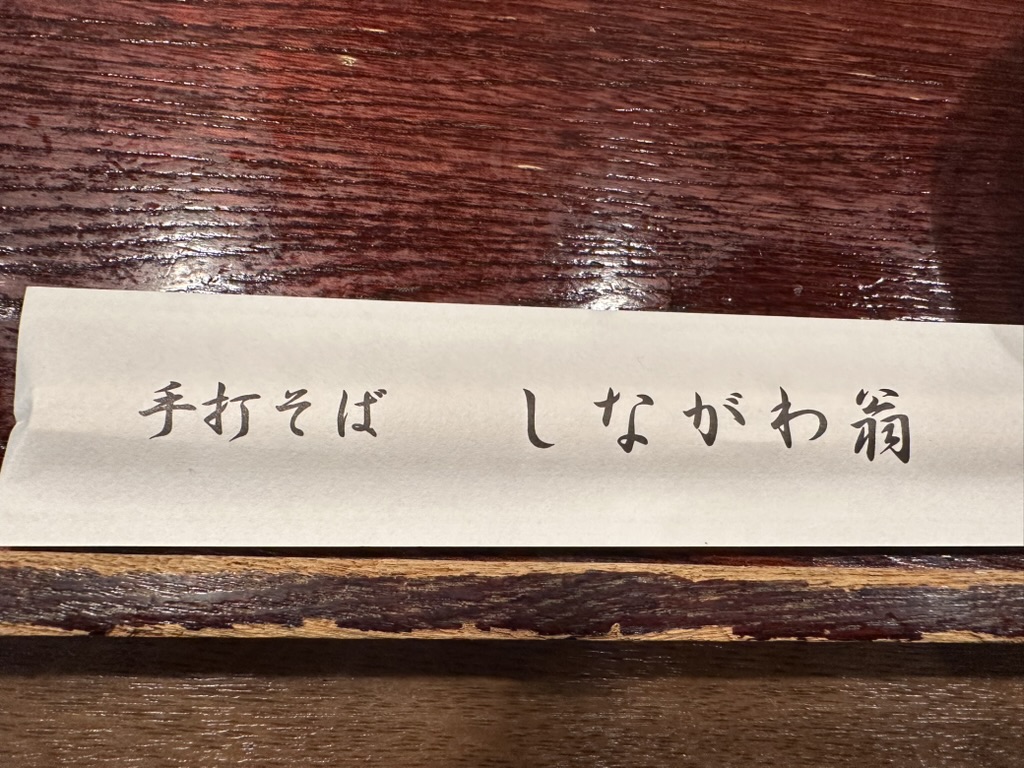 手打そば しながわ翁